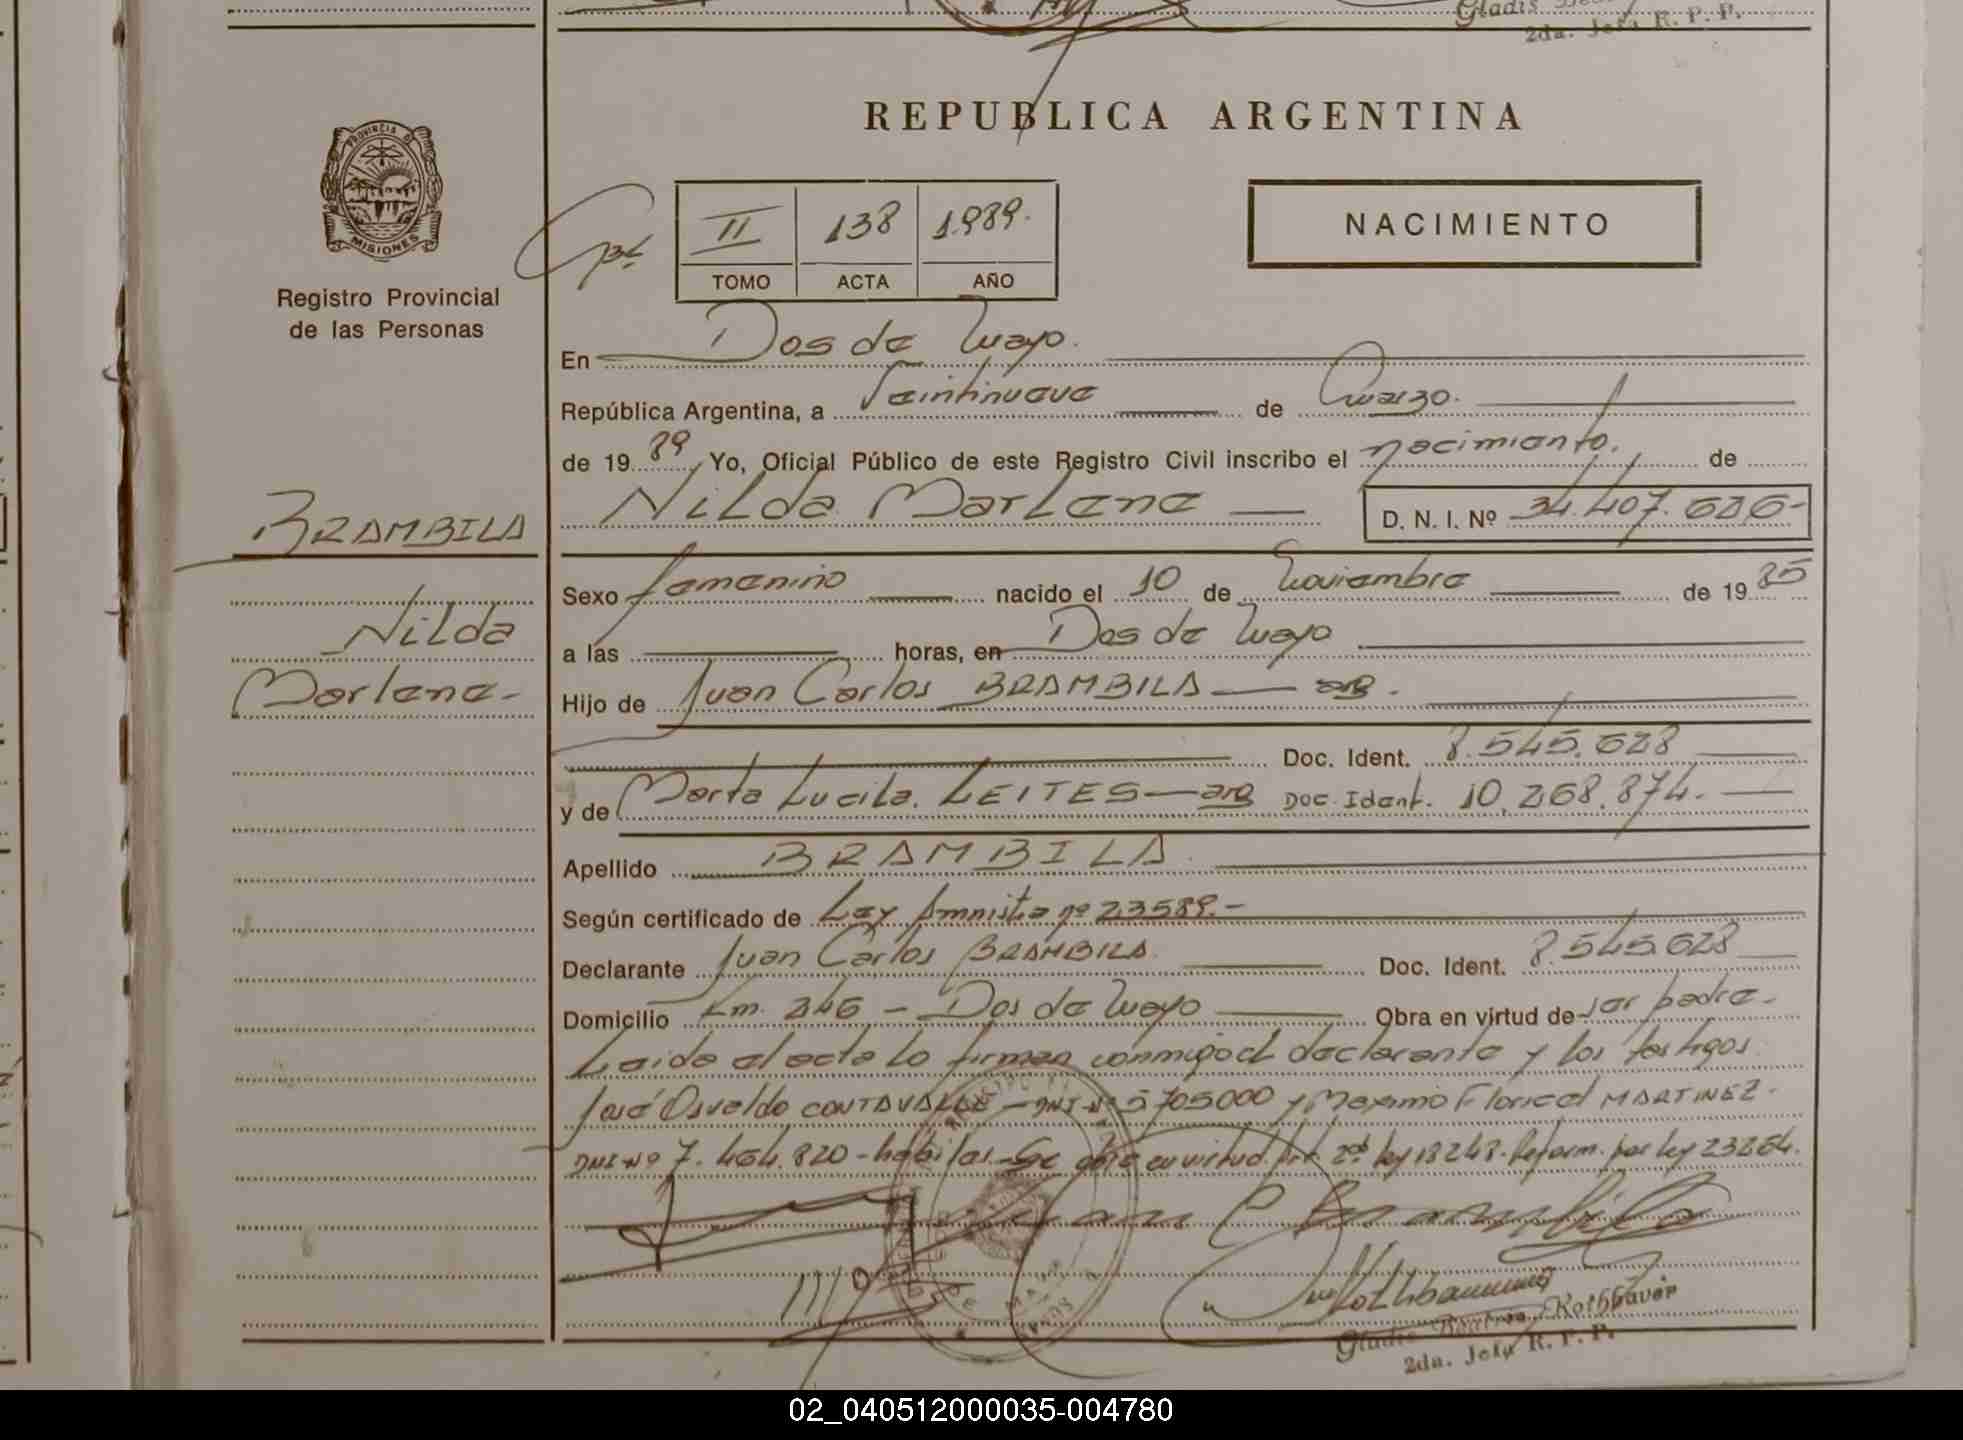 Gladis
2da. Jefa R. P. P.
REPUBLICA ARGENTINA
PROVINCIA DE
MISIONES
Registro Provincial
de las Personas
II 138 1989.
TOMO ACTA AÑO
NACIMIENTO
En Dos de Mayo.
República Argentina, a Veintinueve de Marzo.
de 19 89 Yo, Oficial Público de este Registro Civil inscribo el nacimiento. de
Nilda Marlene D. N. I. Nº 34.407.686-
BRAMBILA
Nilda
Marlene-
Sexo femenino nacido el 10 de Noviembre de 19 85
a las horas, en Dos de Mayo
Hijo de Juan Carlos BRAMBILA arg.
Doc. Ident. 8.545.628
y de Marta Lucila LEITES arg Doc. Ident. 10.268.874.
Apellido BRAMBILA.
Según certificado de Ley Amnistia nº 23589.-
Declarante Juan Carlos BRAMBILA. Doc. Ident. 8.545.628
Domicilio Km. 246 - Dos de Mayo Obra en virtud de ser padre-
Leida el acta lo firman conmigo el declarante y los testigos
José Osvaldo CONTAVALLE - DNI-Nº 5705000 y Maximo Floriel MARTINEZ-
DNI-Nº 7.464.820- habiles- Se en virtud Art 2do ley 18248. Reform. por ley 23264.
Juan C Brambila
Gladis Beatriz Rothbauer
2da. Jefa R. P. P.
02_040512000035-004780